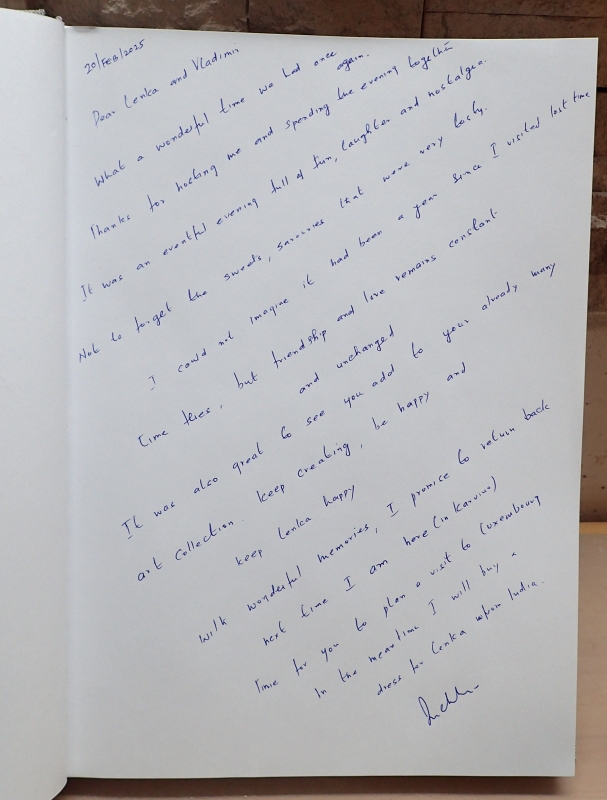 20/FEB/2025
Dear Lenka and Vladimir
What a wonderful time we had once again.
Thanks for hosting me and spending the evening together
It was an eventful evening full of fun, laughter and nostalgia.
Not to forget the sweets, savouries that were very tasty.
I could not imagine it had been a year since I visited last time
Time flies, but friendship and love remains constant
and unchanged
It was also great to see you add to your already many
art collection. Keep creating, be happy and
keep Lenka happy
With wonderful memories, I promise to return back
next time I am here (in Karvina)
Time for you to plan a visit to Luxembourg
In the meantime I will buy a
dress for Lenka from India.